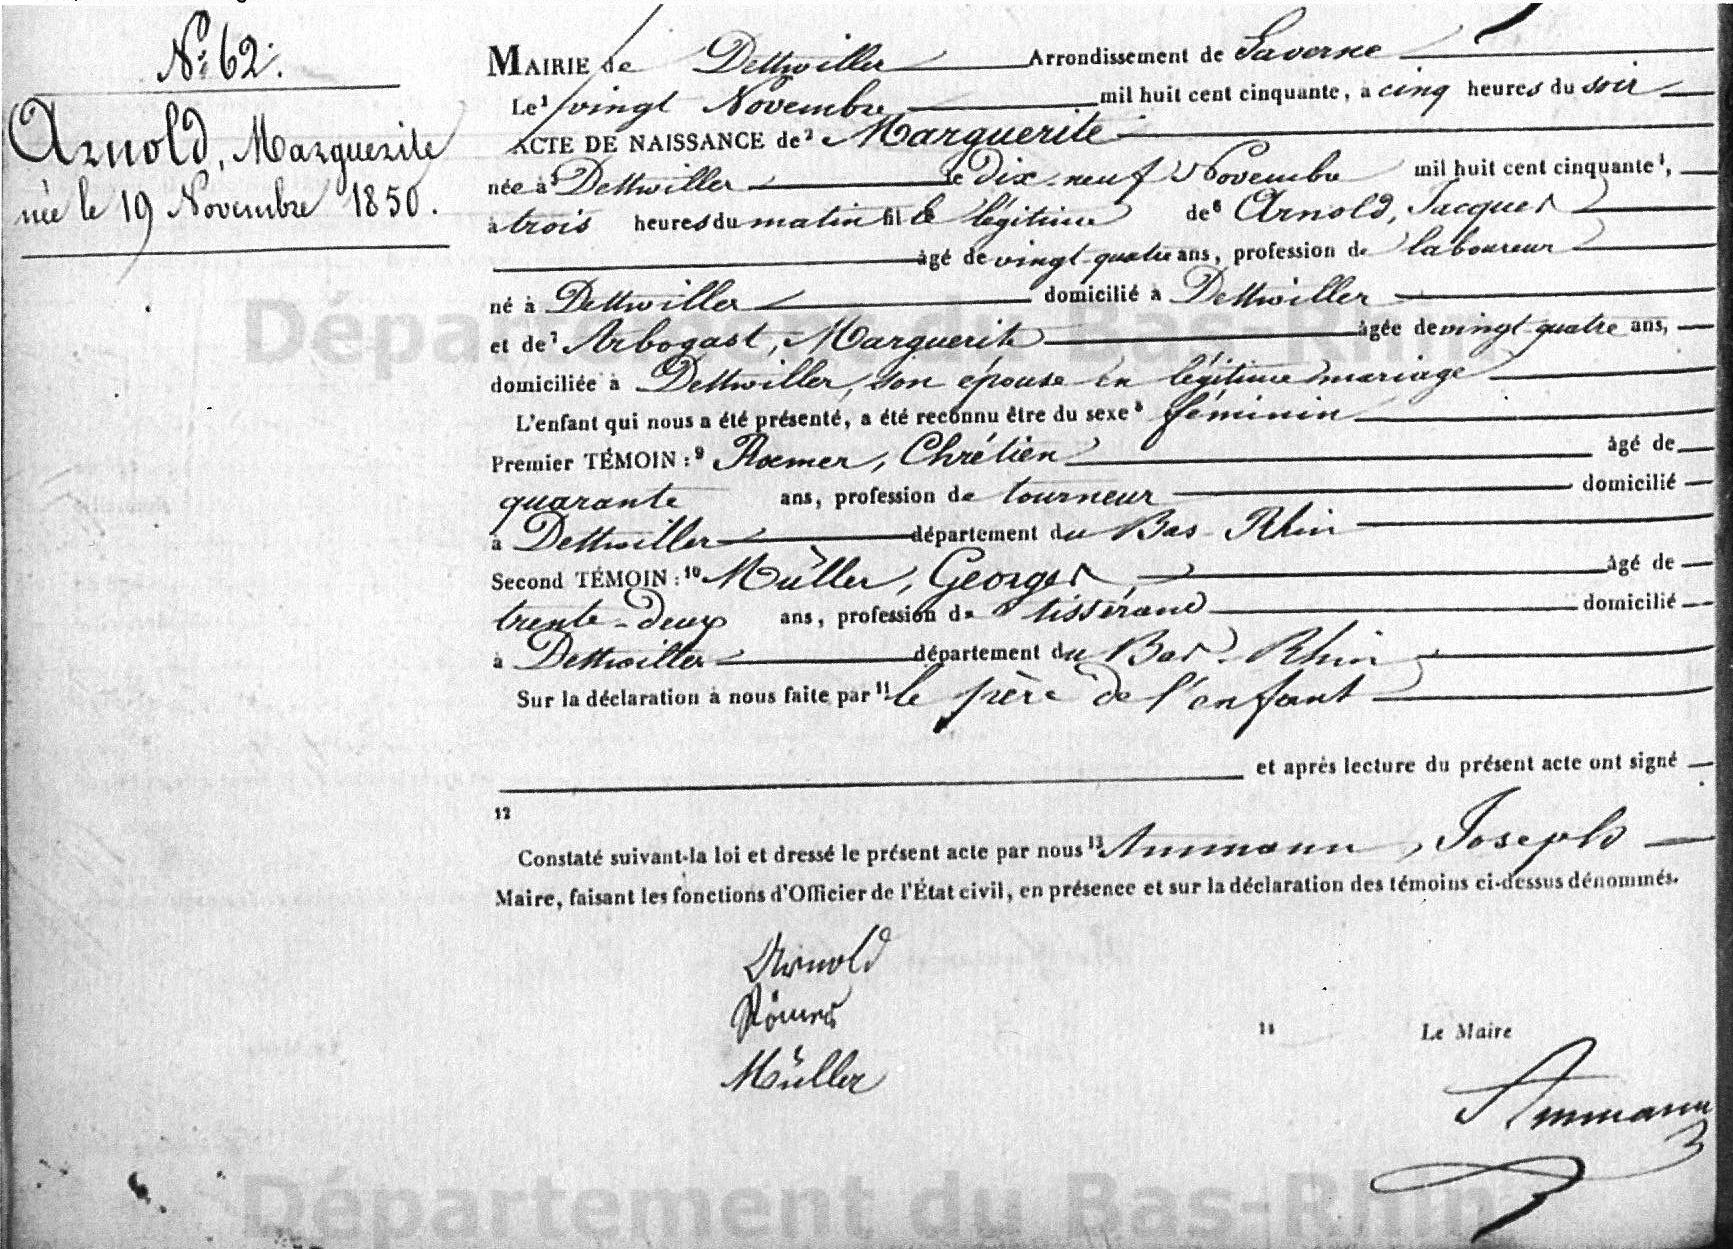 N.° 62.
Arnold, Marguerite
née le 19 Novembre 1850.
MAIRIE de Dettwiller Arrondissement de Saverne
Le¹ vingt Novembre mil huit cent cinquante, à cinq heures du soir
ACTE DE NAISSANCE de² Marguerite
née à³ Dettwiller le dix-neuf Novembre mil huit cent cinquante⁴,
à trois heures du matin fille légitime de⁶ Arnold, Jacques
âgé de vingt-quatre ans, profession de laboureur
né à Dettwiller domicilié à Dettwiller
et de⁷ Arbogast, Marguerite âgée de vingt-quatre ans,
domiciliée à Dettwiller, son épouse en légitime mariage
L'enfant qui nous a été présenté, a été reconnu être du sexe⁸ féminin
Premier TÉMOIN :⁹ Roemer, Chrétien âgé de
quarante ans, profession de tourneur domicilié
à Dettwiller département du Bas-Rhin
Second TÉMOIN :¹⁰ Müller, Georges âgé de
trente-deux ans, profession de tissérand domicilié
à Dettwiller département du Bas-Rhin
Sur la déclaration à nous faite par¹¹ le père de l'enfant
et après lecture du présent acte ont signé
¹²
Constaté suivant la loi et dressé le présent acte par nous¹³ Ammann, Joseph
Maire, faisant les fonctions d'Officier de l'État civil, en présence et sur la déclaration des témoins ci-dessus dénommés.
Arnold
Römer
Müller
¹⁴ Le Maire
Ammann
Département du Bas-Rhin
Département du Bas-Rhin